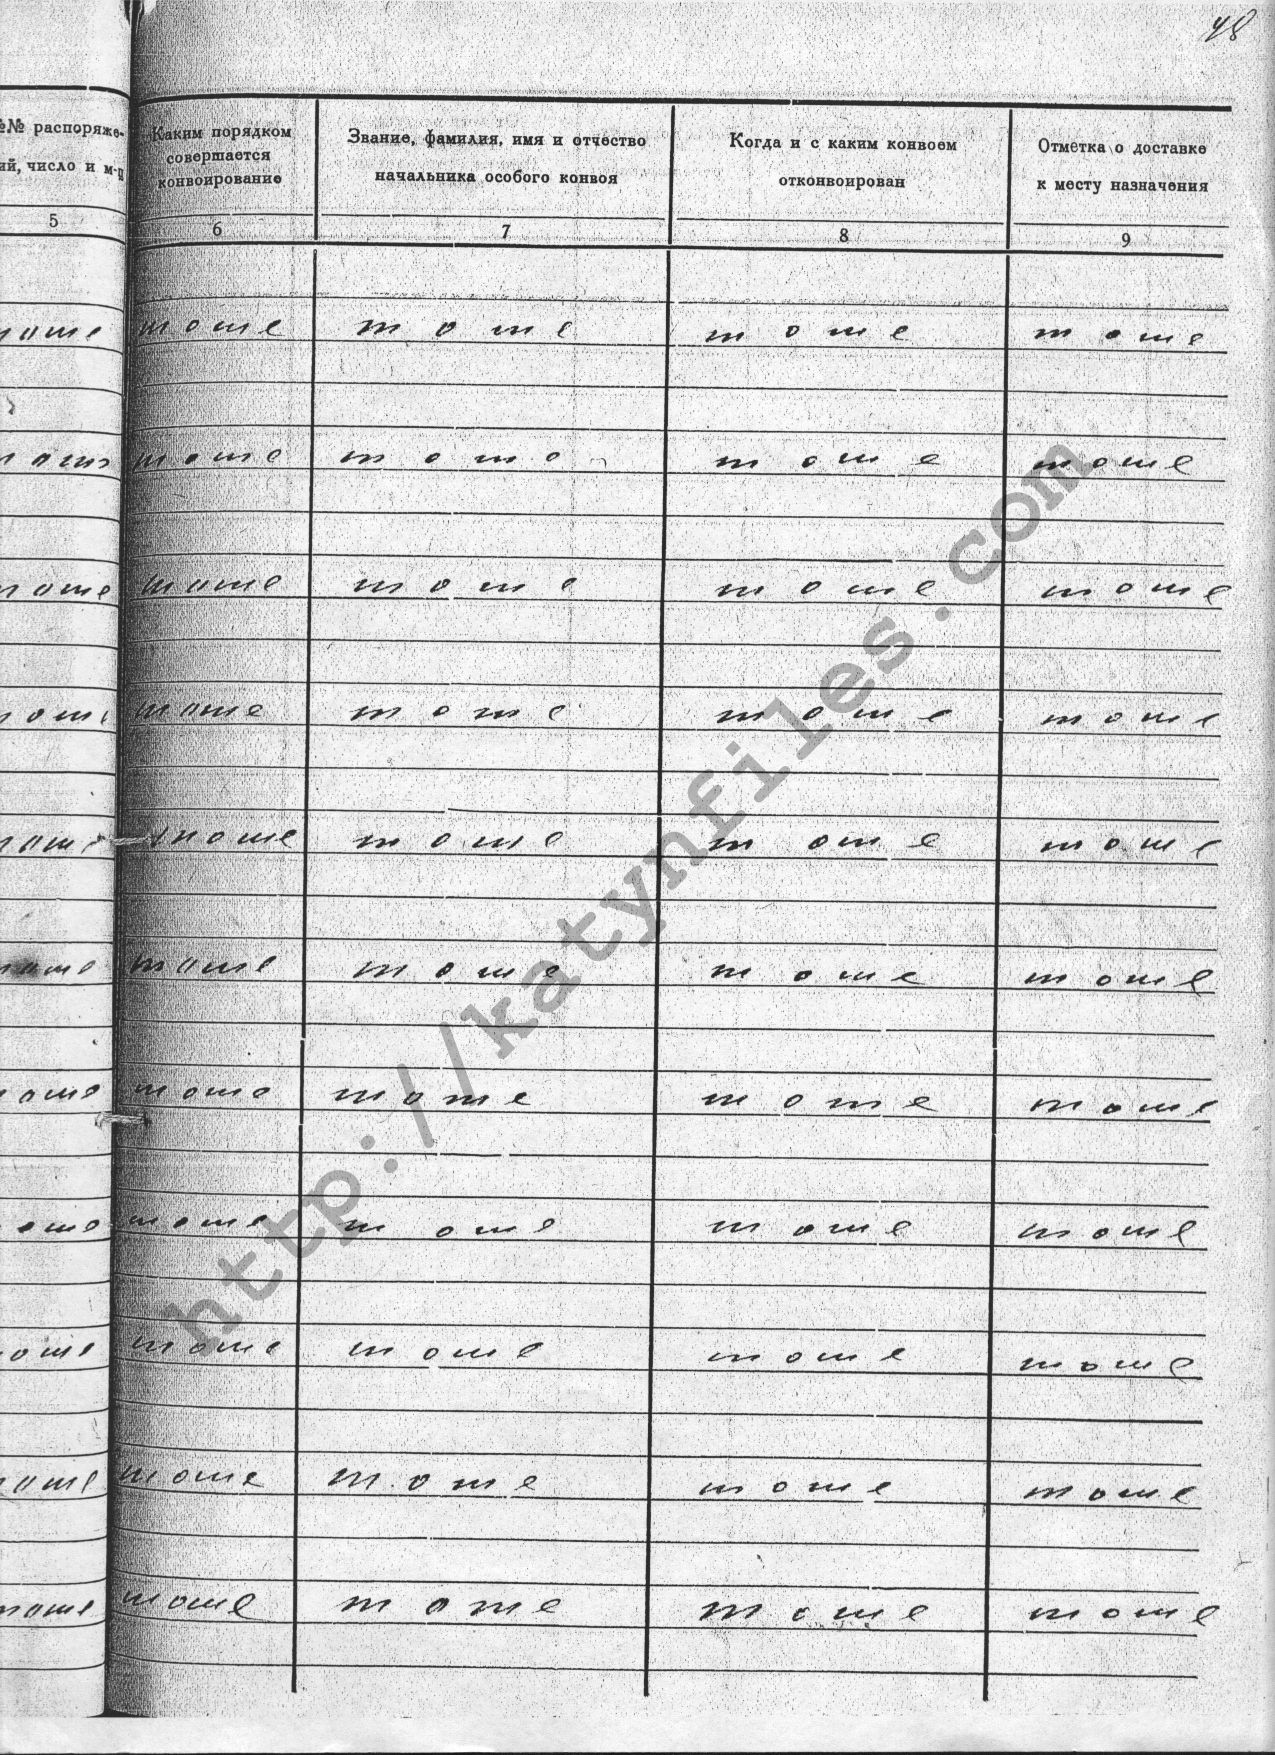 48
№№ распоряже-
ий, число и м-ц
Каким порядком
совершается
конвоирование
Звание, фамилия, имя и отчество
начальника особого конвоя
Когда и с каким конвоем
отконвоирован
Отметка о доставке
к месту назначения
5 6 7 8 9
тоже тоже тоже тоже тоже
тоже тоже тоже тоже тоже
тоже тоже тоже тоже тоже
тоже тоже тоже тоже тоже
тоже тоже тоже тоже тоже
тоже тоже тоже тоже тоже
тоже тоже тоже тоже тоже
тоже тоже тоже тоже тоже
тоже тоже тоже тоже тоже
тоже тоже тоже тоже тоже
тоже тоже тоже тоже тоже
http://katynfiles.com